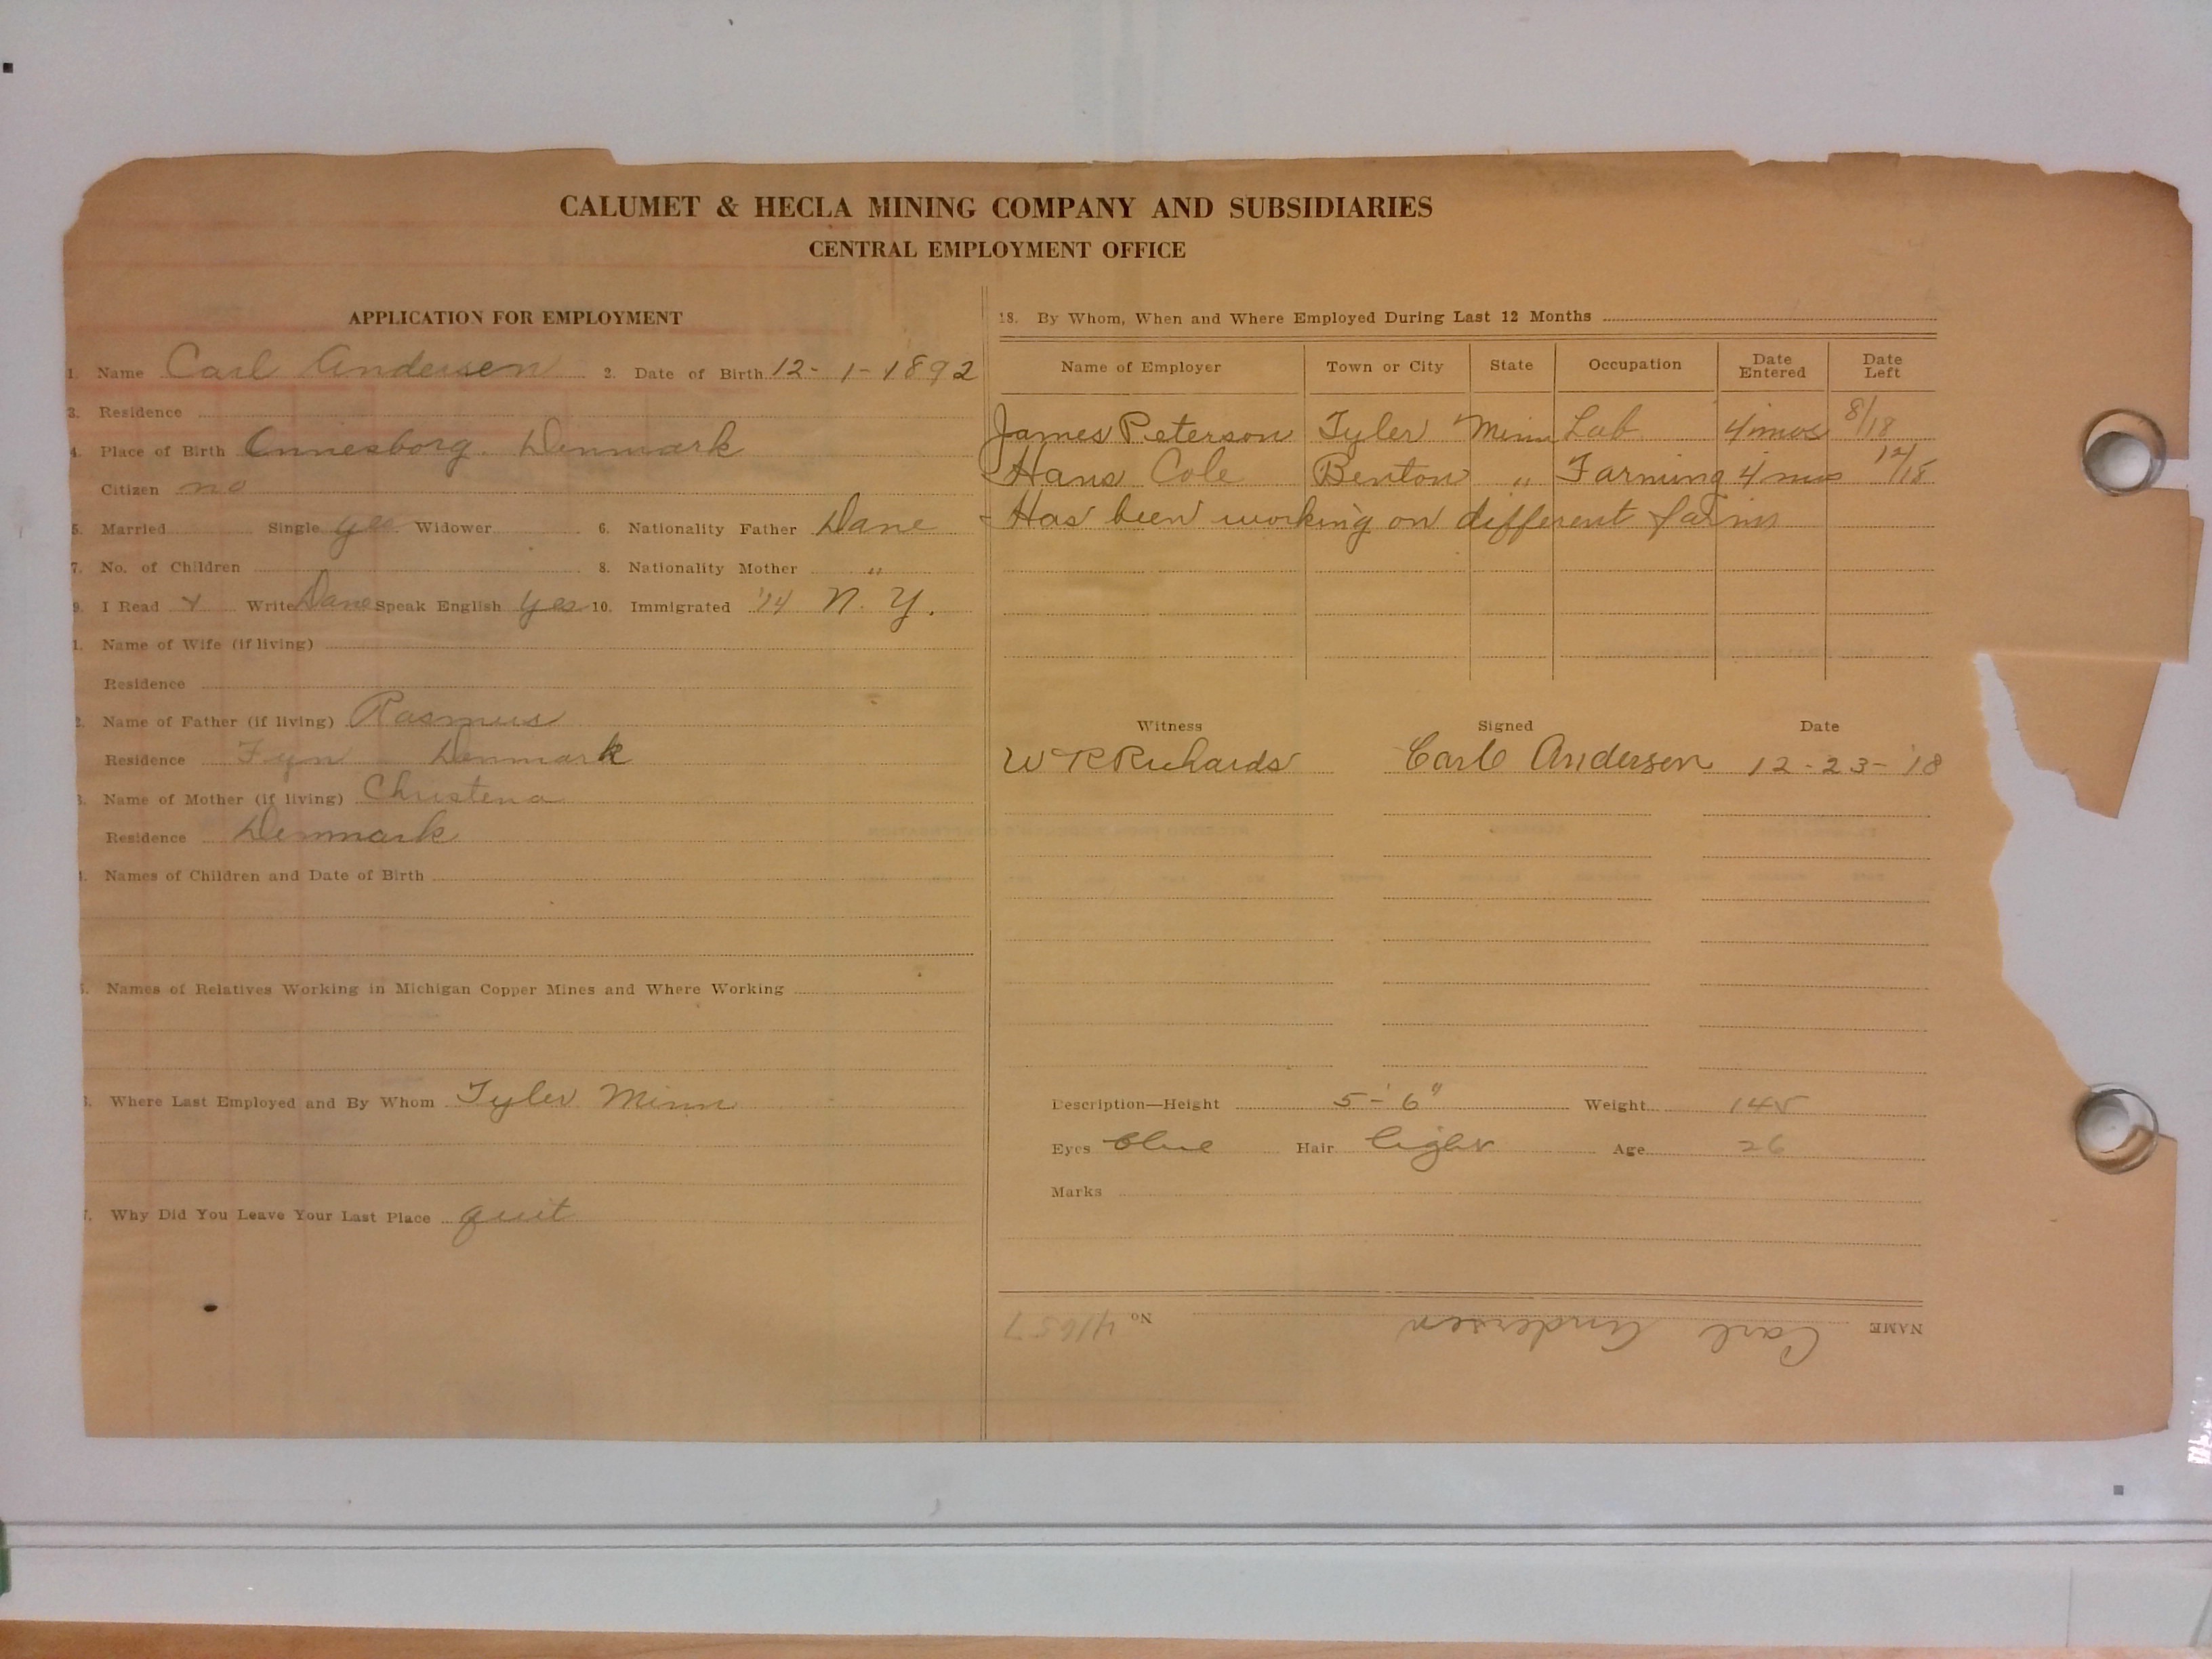 CALUMET & HECLA MINING COMPANY AND SUBSIDIARIES
CENTRAL EMPLOYMENT OFFICE
APPLICATION FOR EMPLOYMENT
1. Name Carl Andersen 2. Date of Birth 12-1-1892
3. Residence
4. Place of Birth Denmark
Citizen no
5. Married Single yes Widower 6. Nationality Father Dane
7. No. of Children 8. Nationality Mother "
9. I Read Write Dane Speak English yes 10. Immigrated '14 N. Y.
1. Name of Wife (if living)
Residence
2. Name of Father (if living) Rasmus
Residence Fyn Denmark
3. Name of Mother (if living) Christena
Residence Denmark
Names of Children and Date of Birth
Names of Relatives Working in Michigan Copper Mines and Where Working
Where Last Employed and By Whom Tyler Minn
7. Why Did You Leave Your Last Place quit
18. By Whom, When and Where Employed During Last 12 Months
Name of Employer Town or City State Occupation Date Entered Date Left
James Peterson Tyler Minn Lab 4 mos 8/18
Hans Cole Benton " Farming 4 mos 12/18
Has been working on different farms
Witness Signed Date
W R Richards Carl Andersen 12-23-'18
Description—Height 5-'6" Weight 145
Eyes blue Hair light Age 26
Marks
NAME Carl Andersen No 41657